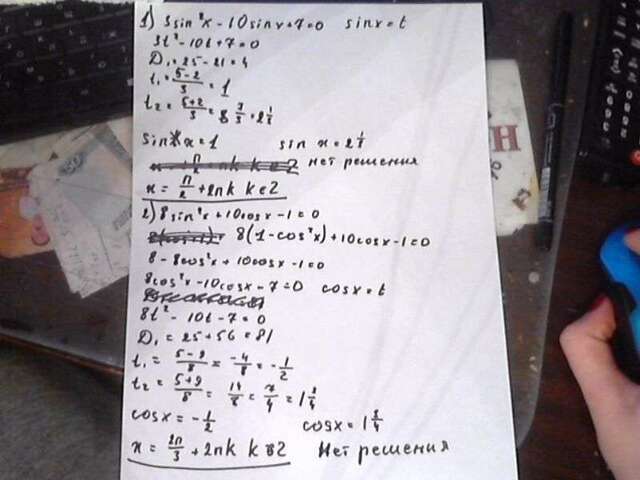 1) 3sin²x - 10sinx + 7 = 0 sinx = t
3t² - 10t + 7 = 0
D₁ = 25 - 21 = 4
t₁ = (5-2)/3 = 1
t₂ = (5+2)/3 = 7/3 = 2 1/3
sin x = 1 sin x = 2 1/3
нет решения
x = п/2 + 2пk k ∈ Z
2) 8sin²x + 10cosx - 1 = 0
8(1 - cos²x) + 10cosx - 1 = 0
8 - 8cos²x + 10cosx - 1 = 0
8cos²x - 10cosx - 7 = 0 cosx = t
8t² - 10t - 7 = 0
D₁ = 25 + 56 = 81
t₁ = (5-9)/8 = -4/8 = -1/2
t₂ = (5+9)/8 = 14/8 = 7/4 = 1 3/4
cosx = -1/2 cosx = 1 3/4
x = 2п/3 + 2пk k ∈ Z Нет решения